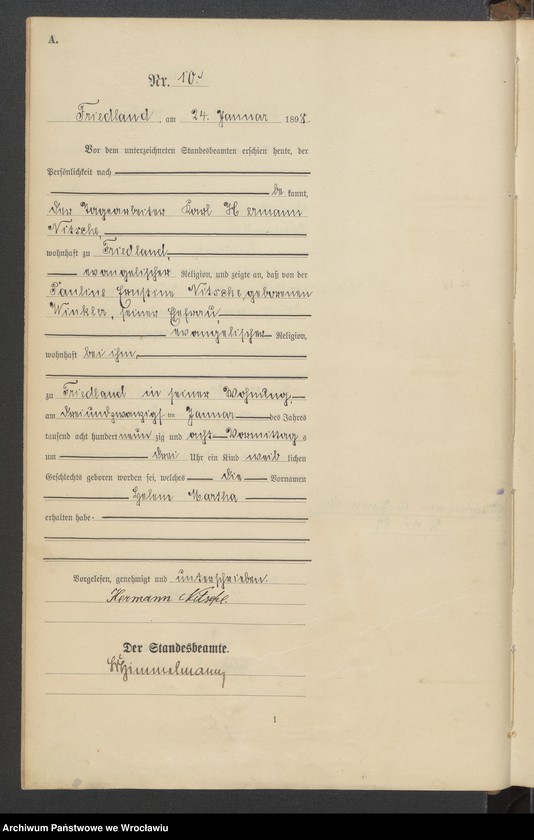 A.
Nr. 10.
Friedland, am 24. Januar 1898.
Vor dem unterzeichneten Standesbeamten erschien heute, der
Persönlichkeit nach
be kannt,
der Tagearbeiter Karl Hermann
Nitsche,
wohnhaft zu Friedland,
evangelischer Religion, und zeigte an, daß von der
Pauline Ernstine Nitsche, geborenen
Winkler, seiner Ehefrau,
evangelischer Religion,
wohnhaft bei ihm,
zu Friedland in seiner Wohnung,
am dreiundzwanzigsten Januar des Jahres
tausend acht hundert neun zig und acht Vormittag s
um drei Uhr ein Kind weib lichen
Geschlechts geboren worden sei, welches die Vornamen
Helene Martha
erhalten habe.
Vorgelesen, genehmigt und unterschrieben.
Hermann Nitsche.
Der Standesbeamte.
Himmelmann
1
Archiwum Państwowe we Wrocławiu